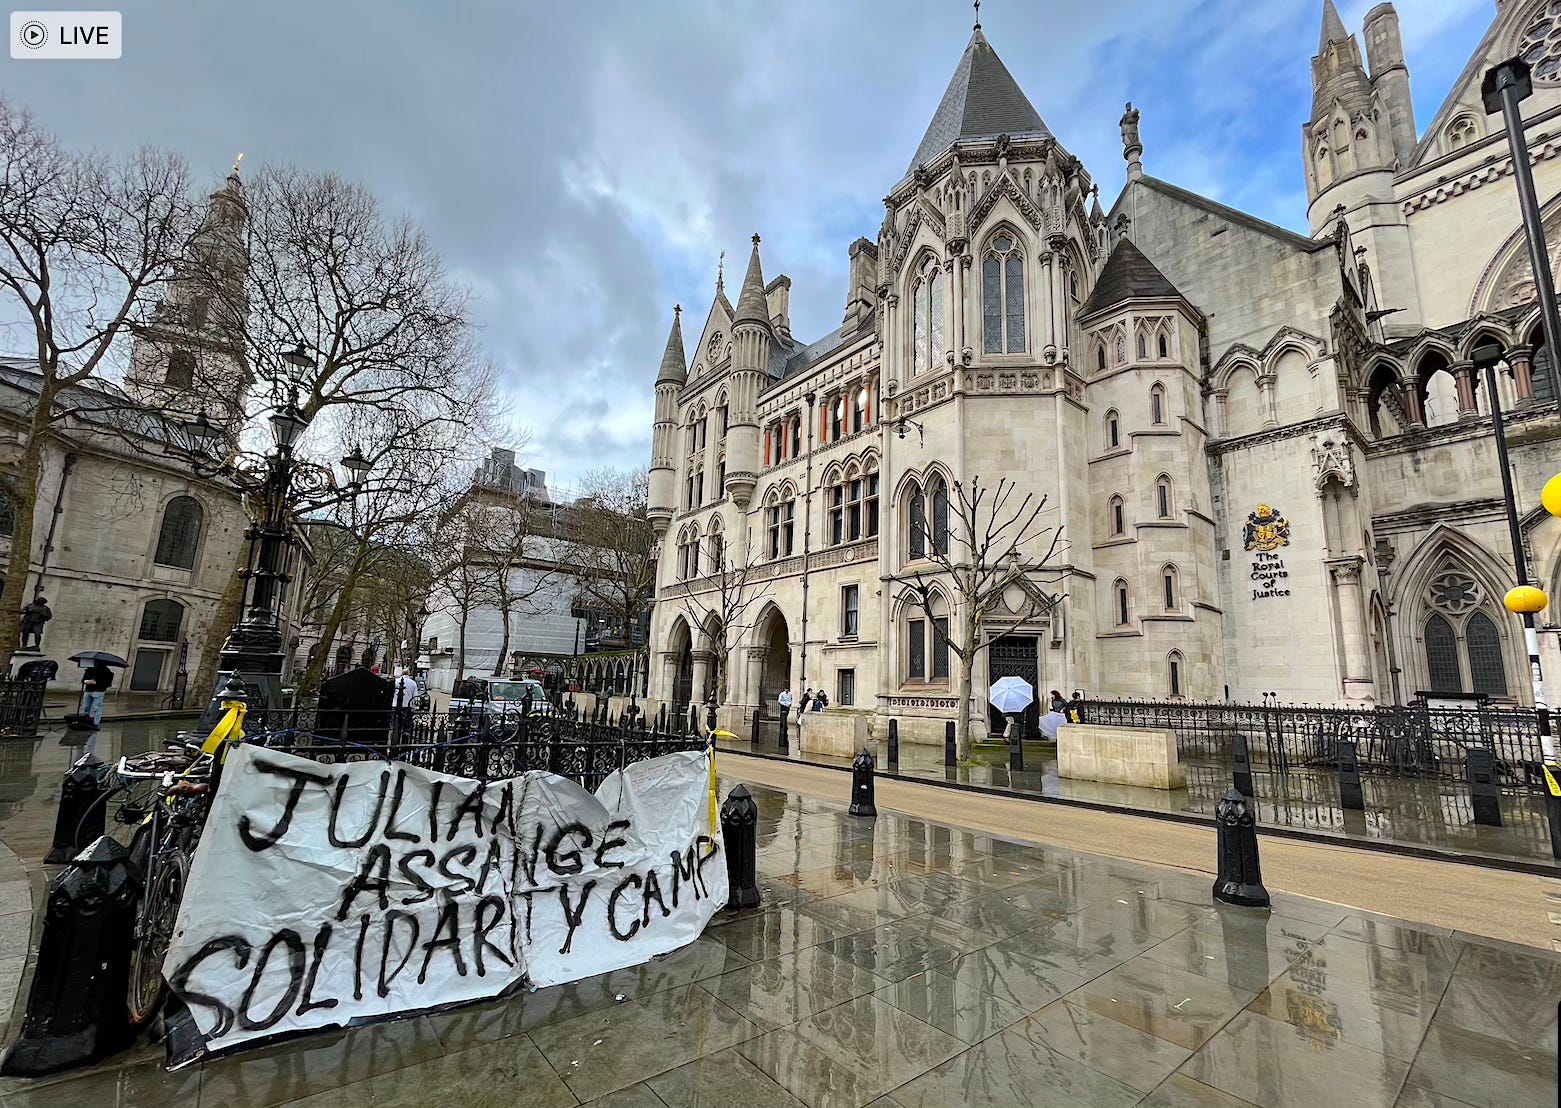 LIVE
The
Royal
Courts
of
Justice
JULIAN
ASSANGE
SOLIDARITY CAMP